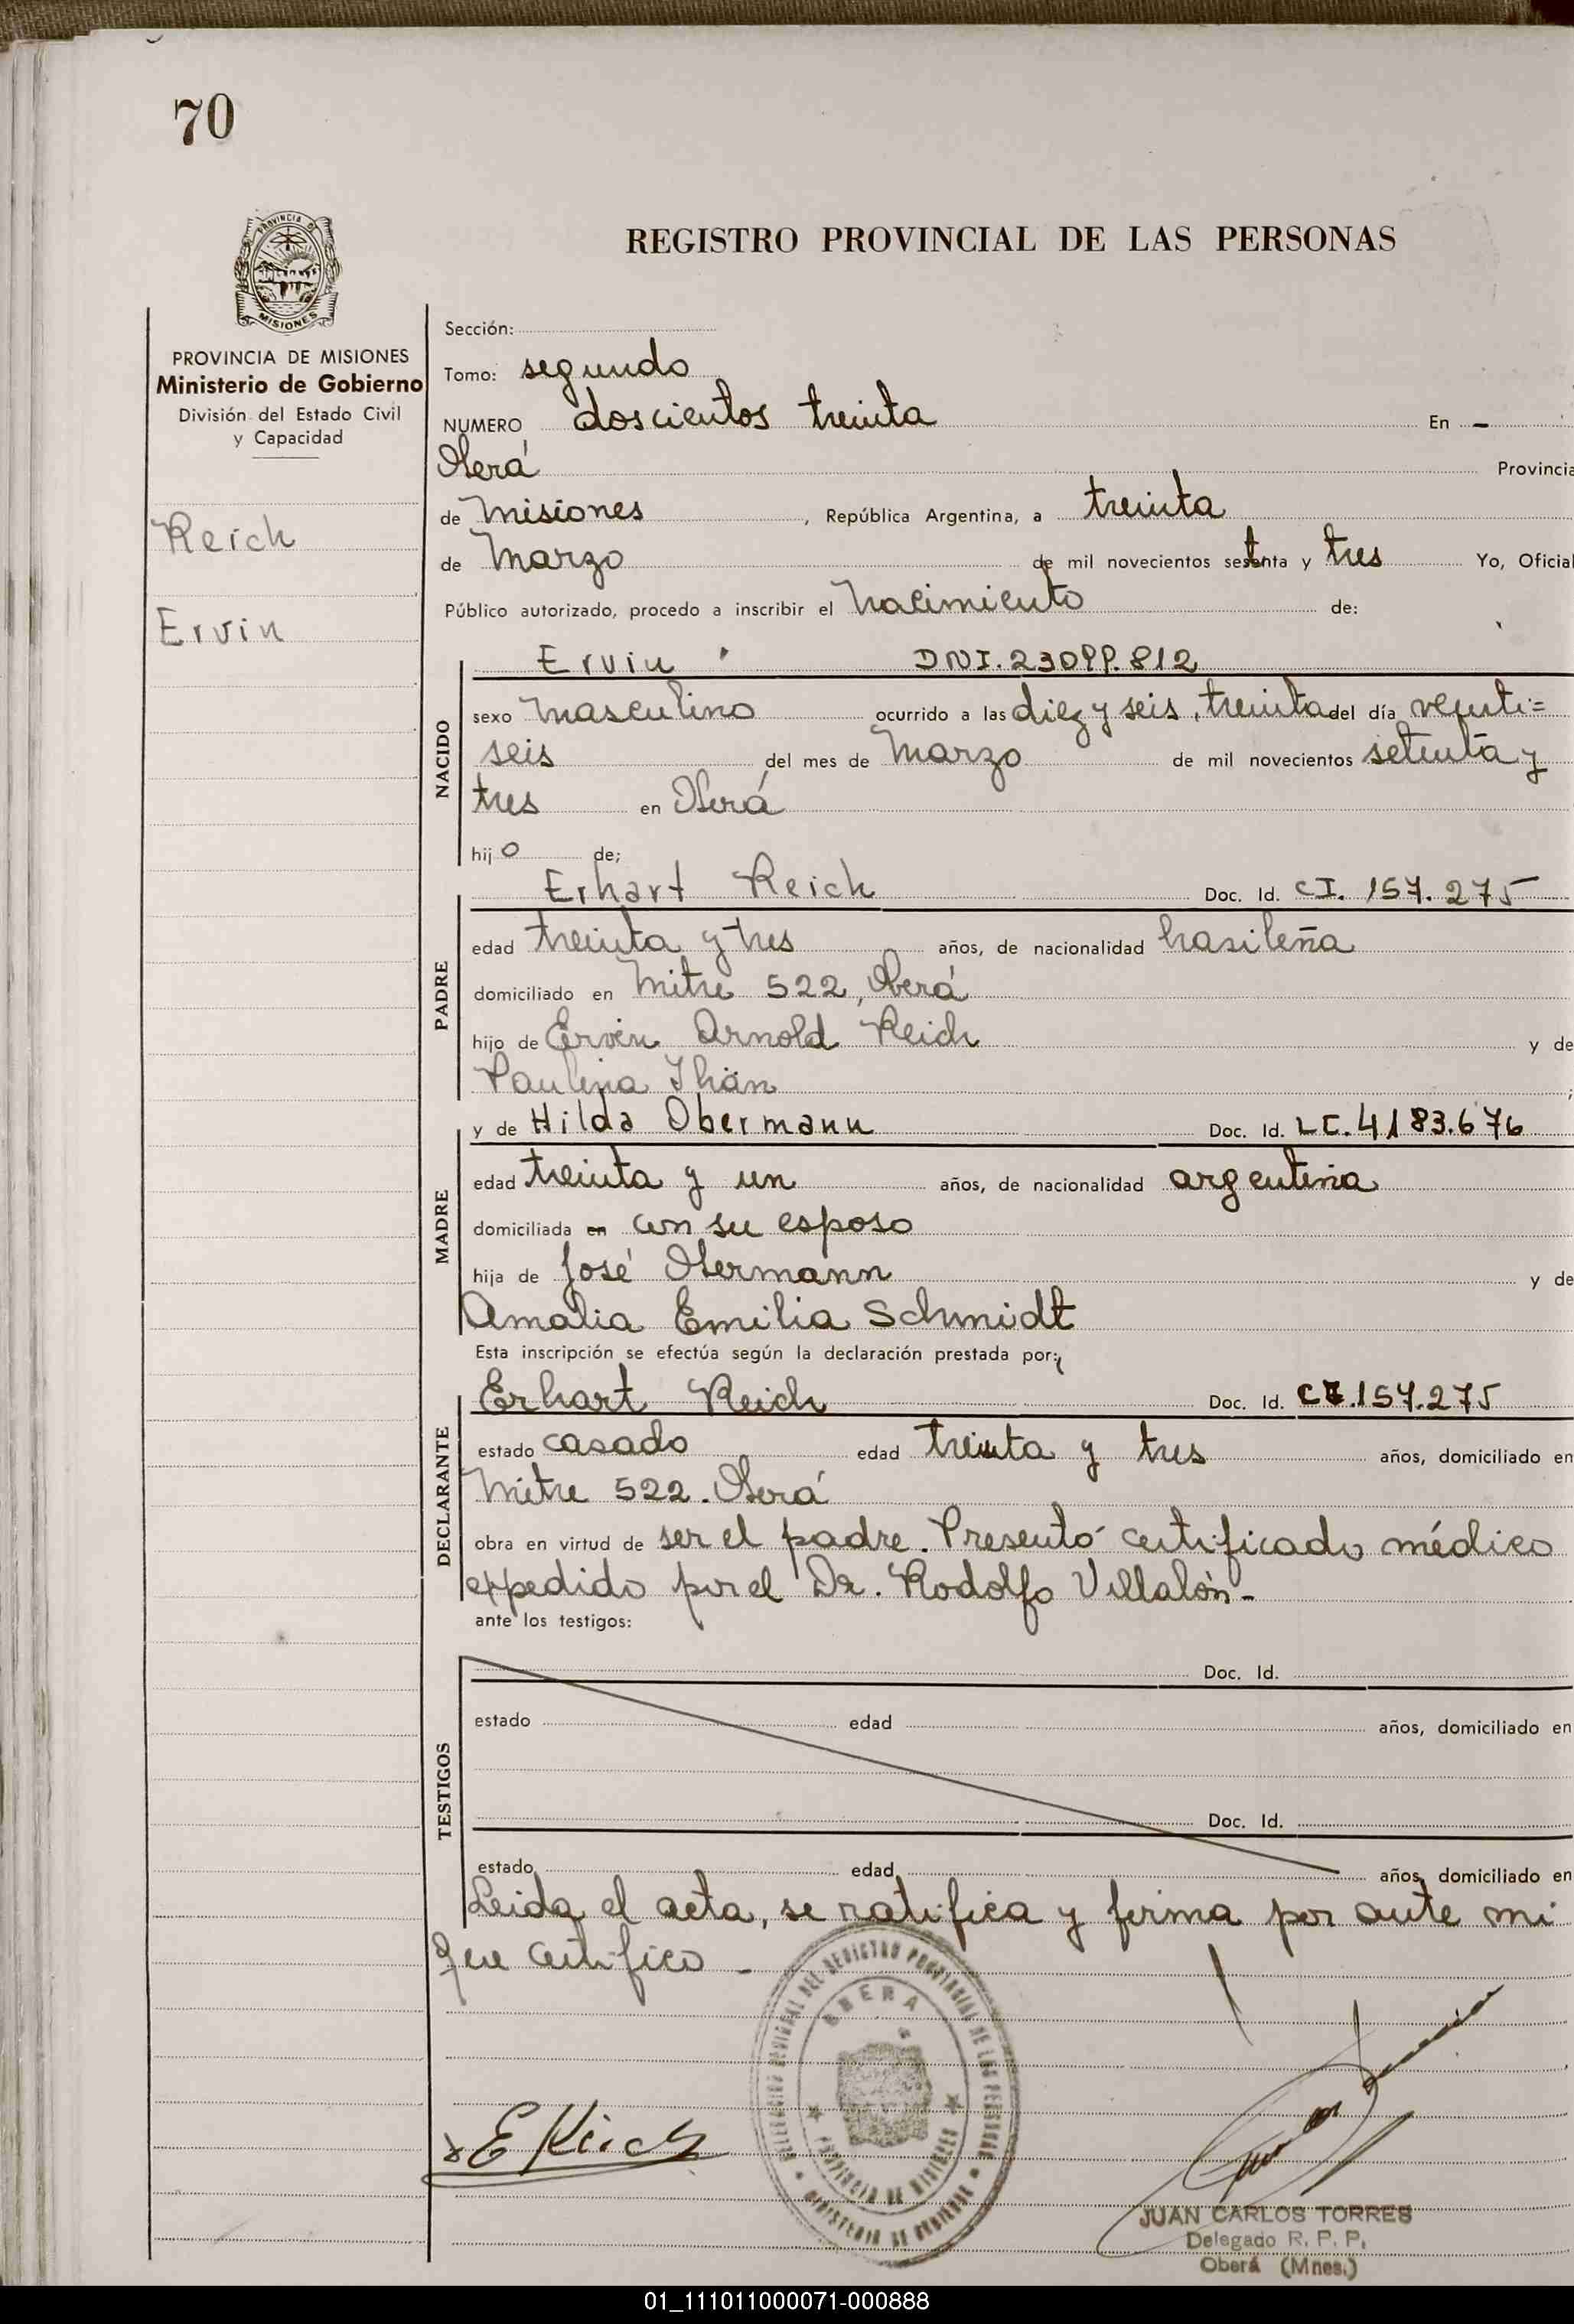 70
REGISTRO PROVINCIAL DE LAS PERSONAS
PROVINCIA DE
MISIONES
PROVINCIA DE MISIONES
Ministerio de Gobierno
División del Estado Civil
y Capacidad
Reich
Ervin
Sección:
Tomo: segundo
NUMERO doscientos treinta En -
Oberá Provincia
de Misiones, República Argentina, a treinta
de Marzo de mil novecientos setenta y tres Yo, Oficial
Público autorizado, procedo a inscribir el Nacimiento de:
NACIDO
Ervin DNI. 23099.812
sexo Masculino ocurrido a las diez y seis, treinta del día veinti=
seis del mes de Marzo de mil novecientos setenta y
tres en Oberá
hijo de;
PADRE
Erhart Reich Doc. Id. CI. 157.275
edad treinta y tres años, de nacionalidad brasileña
domiciliado en Mitre 522, Oberá
hijo de Ervin Arnold Reich y de
Paulina Thän ;
MADRE
y de Hilda Obermann Doc. Id. LC. 4183.676
edad treinta y un años, de nacionalidad argentina
domiciliada en con su esposo
hija de José Obermann y de
Amalia Emilia Schmidt
Esta inscripción se efectúa según la declaración prestada por:
DECLARANTE
Erhart Reich Doc. Id. CI.157.275
estado casado edad treinta y tres años, domiciliado en
Mitre 522. Oberá
obra en virtud de ser el padre. Presentó certificado médico
expedido por el Dr. Rodolfo Villalón-
ante los testigos:
TESTIGOS
Doc. Id.
estado edad años, domiciliado en
Doc. Id.
estado edad años, domiciliado en
Leida el acta, se ratifica y firma por ante mi
que certifico -
OBERA
PROVINCIA DE MISIONES
E Reich
JUAN CARLOS TORRES
Delegado R. P. P.
Oberá (Mnes.)
01_111011000071-000888